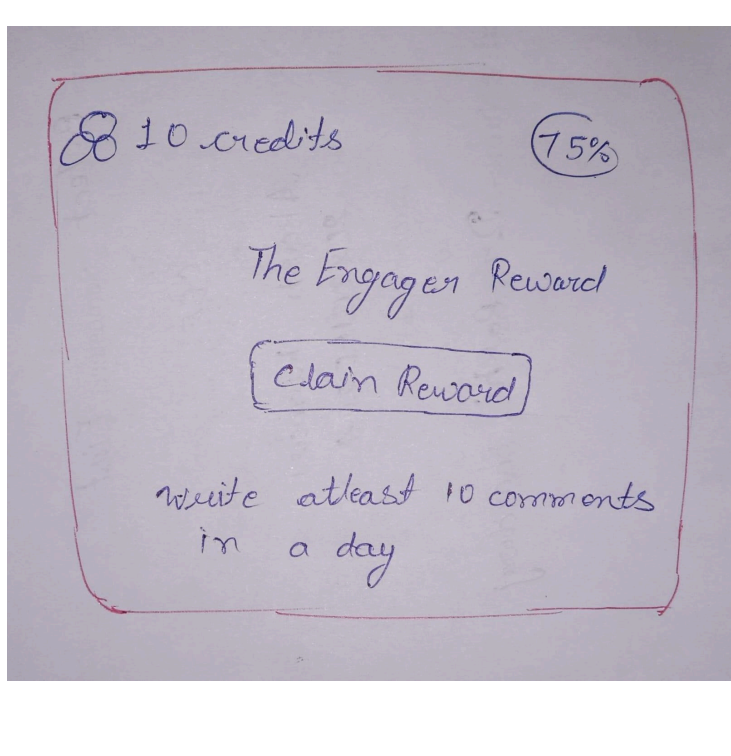 10 credits
75%
The Engager Reward
Claim Reward
write atleast 10 comments
in a day